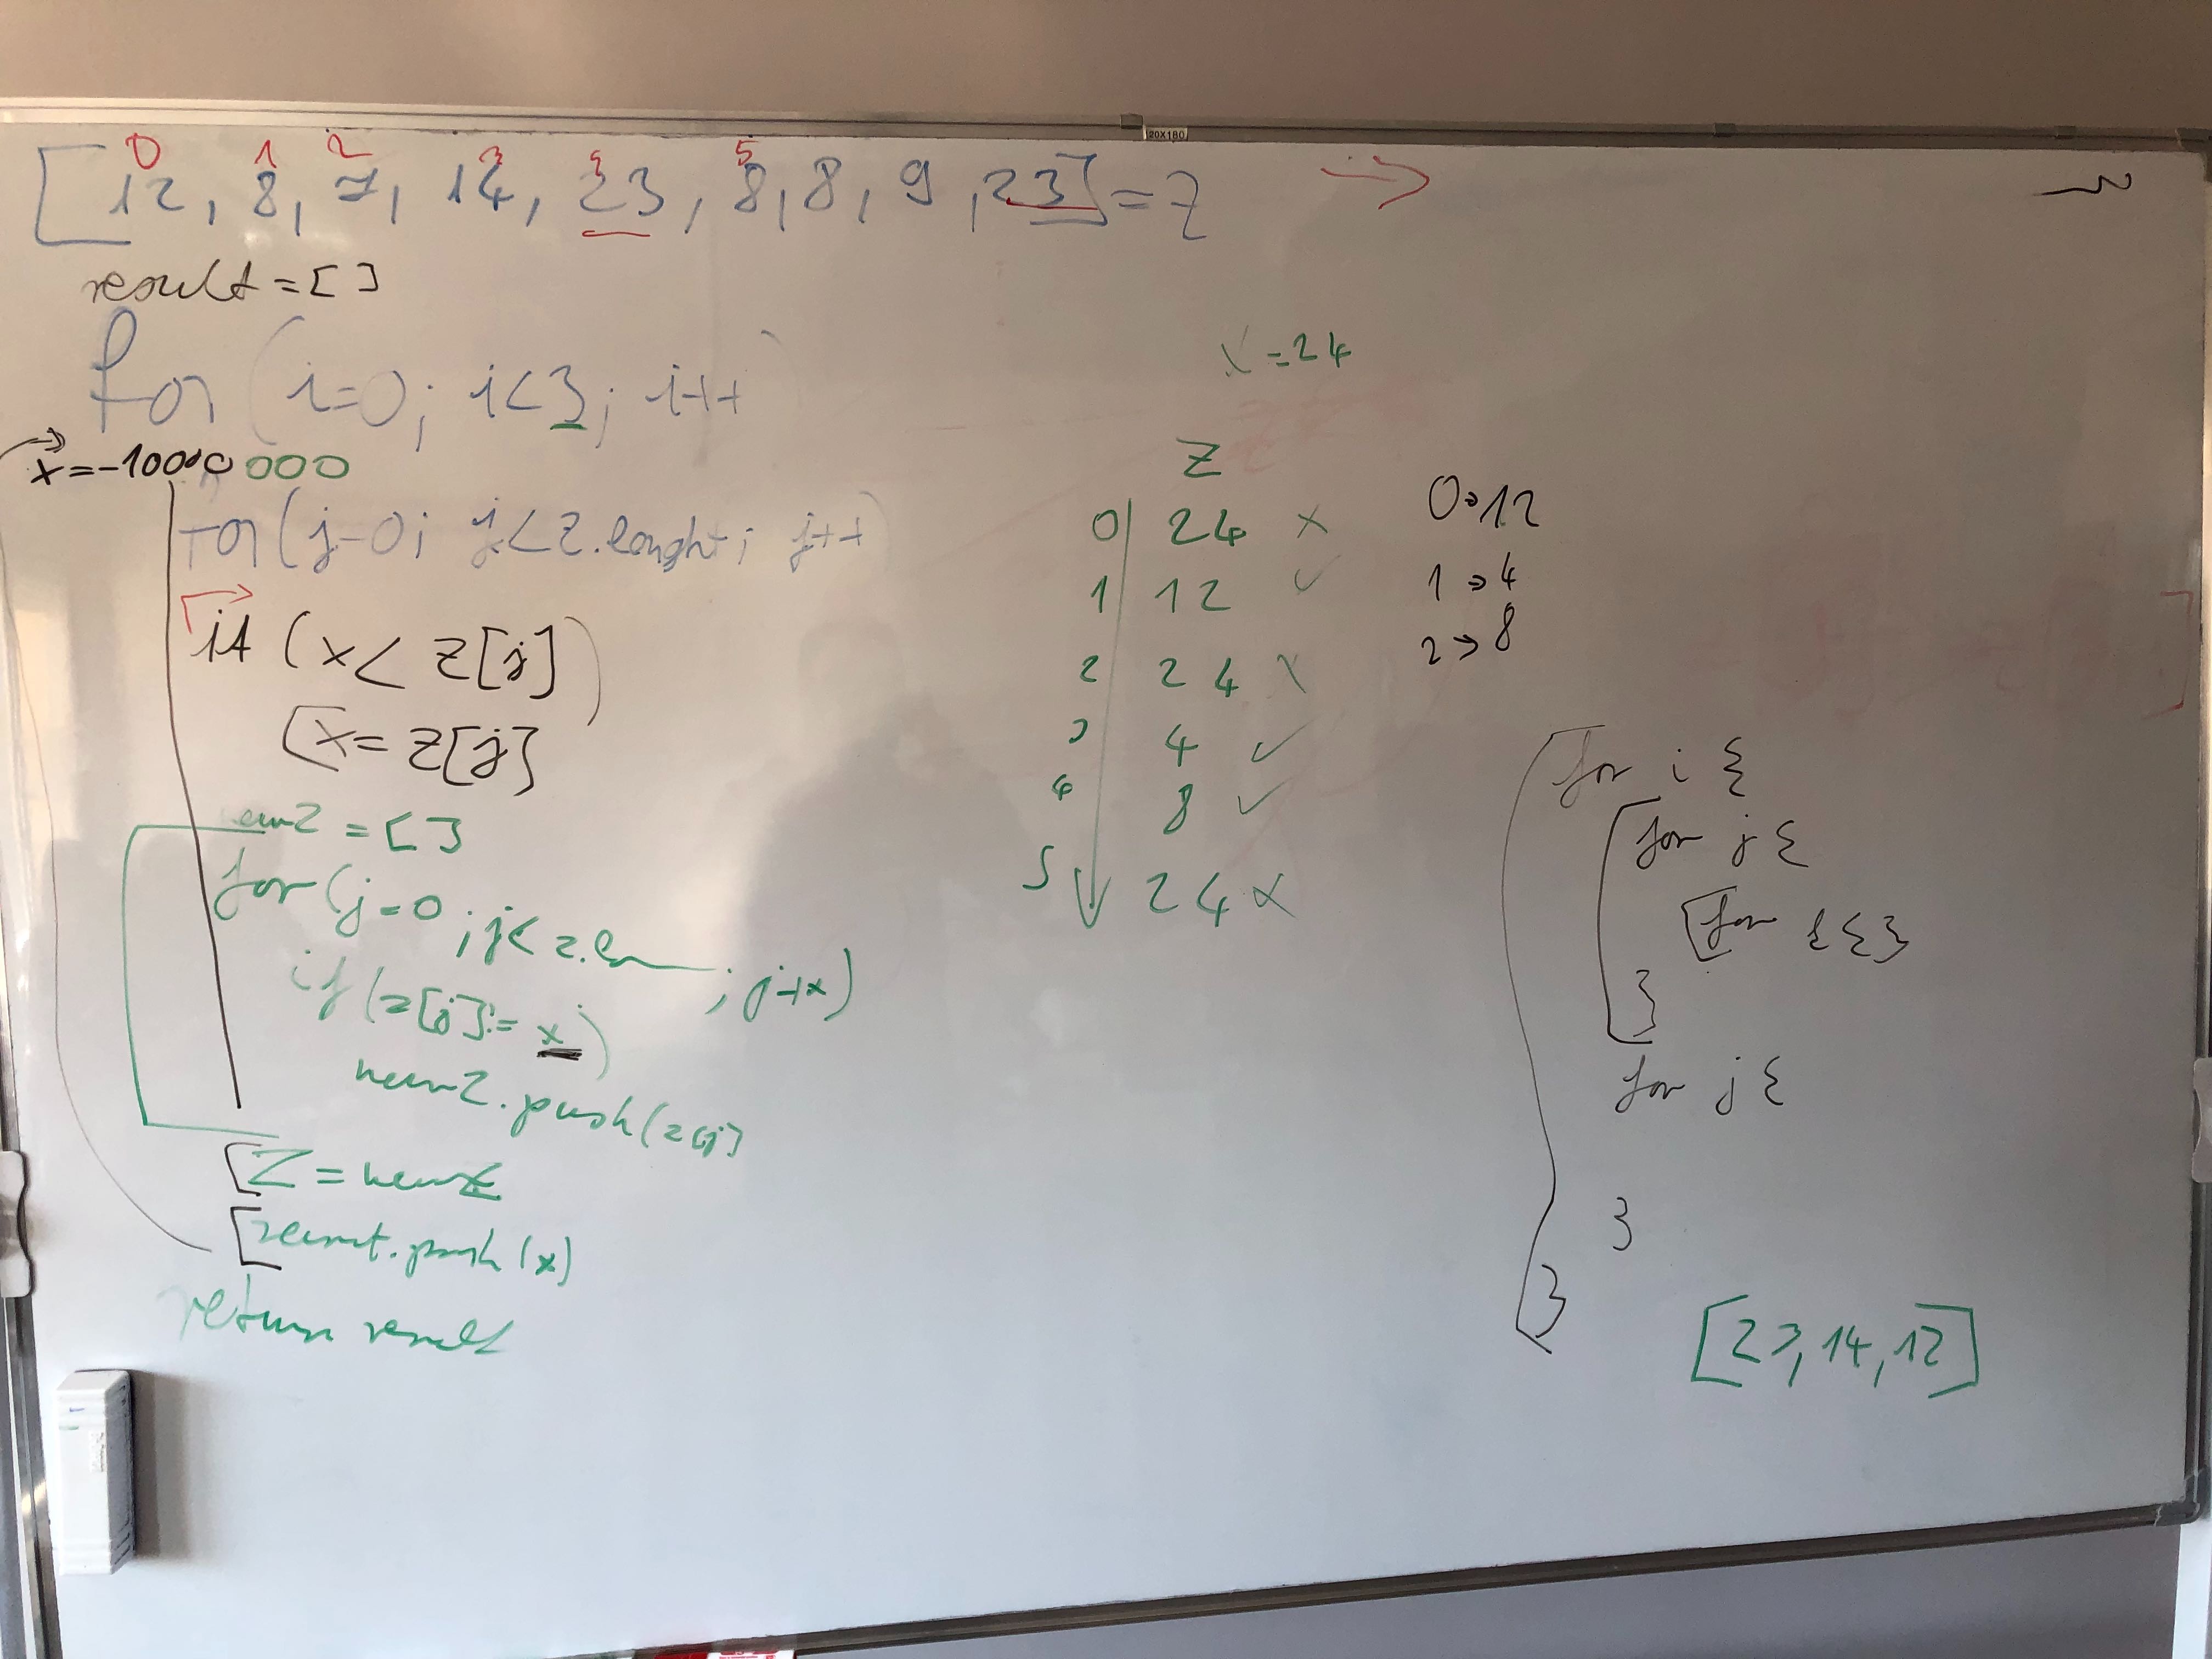 20X180
0 1 2 3 4 5
[12, 8, 7, 14, 23, 8, 8, 9, 23] = Z
result = [ ]
for (i=0; i<3; i++)
x = -10000 000
for (j=0; j<z.lenght; j++)
if (x < z[j])
x = z[j]
newZ = [ ]
for (j=0; j<z.len; j++)
if (z[j] != x)
newZ.push(z[j]
Z = newZ
result.push(x)
return result
x = 24
Z
0 24 x
1 12 ✓
2 24 x
3 4 ✓
4 8 ✓
5 24 x
0 → 12
1 → 4
2 → 8
for i {
for j {
for { { }
}
for j {
}
}
[23, 14, 12]